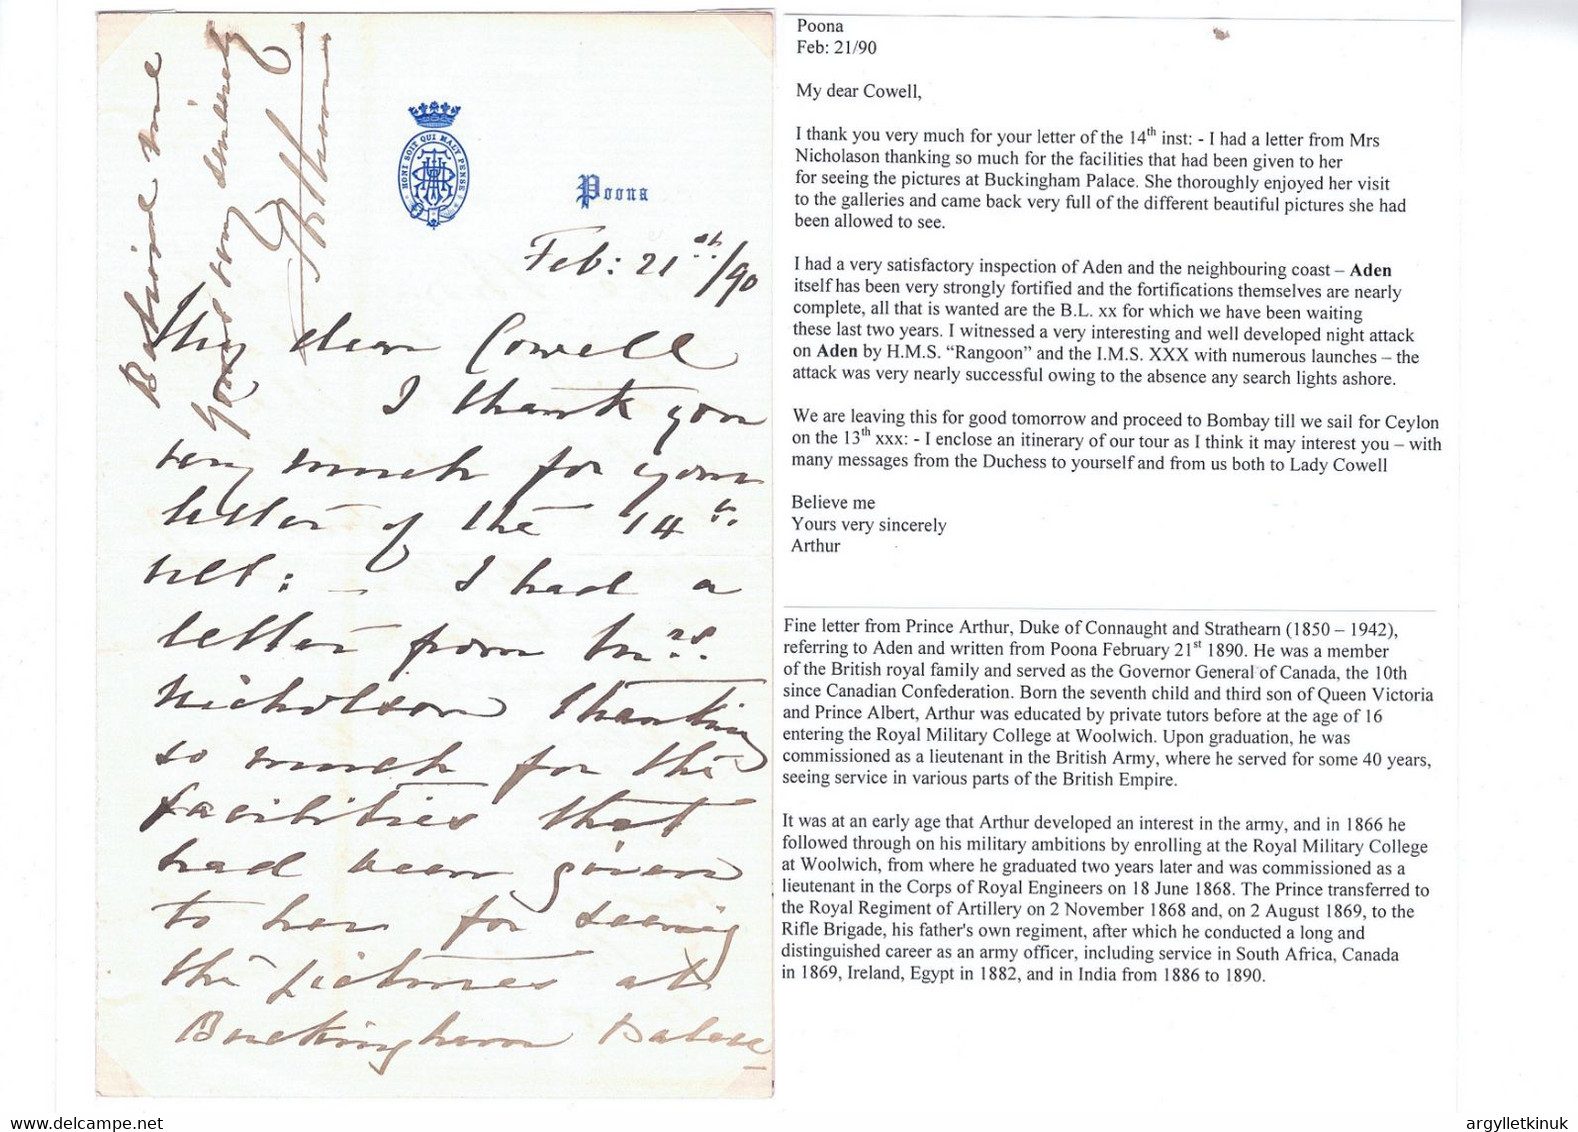 Believe me
Yours very sincerely
Arthur
HONI SOIT QUI MAL Y PENSE
Poona
Feb: 21st/90
My dear Cowell
I thank you
very much for your
letter of the 14th
ult: – I had a
letter from Mrs.
Nicholson thanking
so much for the
facilities that
had been given
to her for seeing
the pictures at
Buckingham Palace
Poona
Feb: 21/90
My dear Cowell,
I thank you very much for your letter of the 14th inst: - I had a letter from Mrs
Nicholason thanking so much for the facilities that had been given to her
for seeing the pictures at Buckingham Palace. She thoroughly enjoyed her visit
to the galleries and came back very full of the different beautiful pictures she had
been allowed to see.
I had a very satisfactory inspection of Aden and the neighbouring coast – Aden
itself has been very strongly fortified and the fortifications themselves are nearly
complete, all that is wanted are the B.L. xx for which we have been waiting
these last two years. I witnessed a very interesting and well developed night attack
on Aden by H.M.S. “Rangoon” and the I.M.S. XXX with numerous launches – the
attack was very nearly successful owing to the absence any search lights ashore.
We are leaving this for good tomorrow and proceed to Bombay till we sail for Ceylon
on the 13th xxx: - I enclose an itinerary of our tour as I think it may interest you – with
many messages from the Duchess to yourself and from us both to Lady Cowell
Believe me
Yours very sincerely
Arthur
Fine letter from Prince Arthur, Duke of Connaught and Strathearn (1850 – 1942),
referring to Aden and written from Poona February 21st 1890. He was a member
of the British royal family and served as the Governor General of Canada, the 10th
since Canadian Confederation. Born the seventh child and third son of Queen Victoria
and Prince Albert, Arthur was educated by private tutors before at the age of 16
entering the Royal Military College at Woolwich. Upon graduation, he was
commissioned as a lieutenant in the British Army, where he served for some 40 years,
seeing service in various parts of the British Empire.
It was at an early age that Arthur developed an interest in the army, and in 1866 he
followed through on his military ambitions by enrolling at the Royal Military College
at Woolwich, from where he graduated two years later and was commissioned as a
lieutenant in the Corps of Royal Engineers on 18 June 1868. The Prince transferred to
the Royal Regiment of Artillery on 2 November 1868 and, on 2 August 1869, to the
Rifle Brigade, his father's own regiment, after which he conducted a long and
distinguished career as an army officer, including service in South Africa, Canada
in 1869, Ireland, Egypt in 1882, and in India from 1886 to 1890.
© www.delcampe.net
argylletkinuk